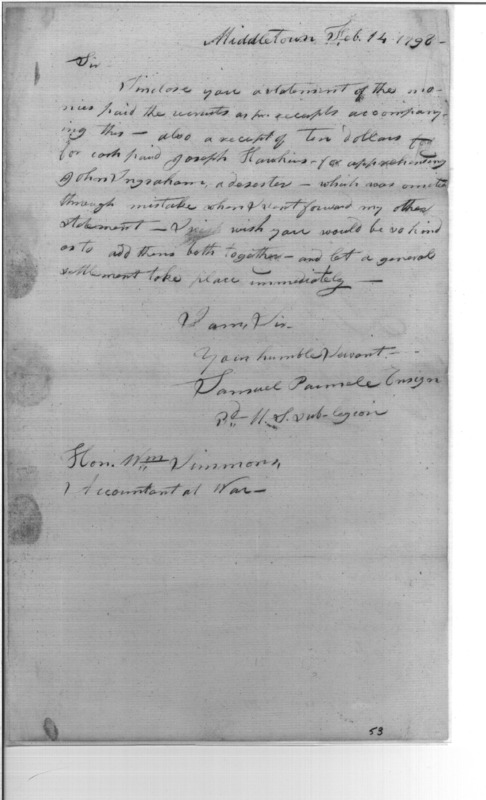 Middletown Feb. 14 1796 -
Sir
I inclose you a statement of the mo-
nies paid the recruits as per receipts accompany-
ing this - also a receipt of Ten dollars for
for cash paid Joseph Hawkins - for apprehending
John Ingraham, a deserter - which was omitted
through mistake when I sent forward my other
statement - I wish you would be so kind
as to add them both together - and let a general
settlement take place immediately -
I am, Sir -
Your humble Servant -
Samuel Parmele Ensign
3d U. S. Sub-legion
Hon. Wm Simmons,
Accountant of War -
53